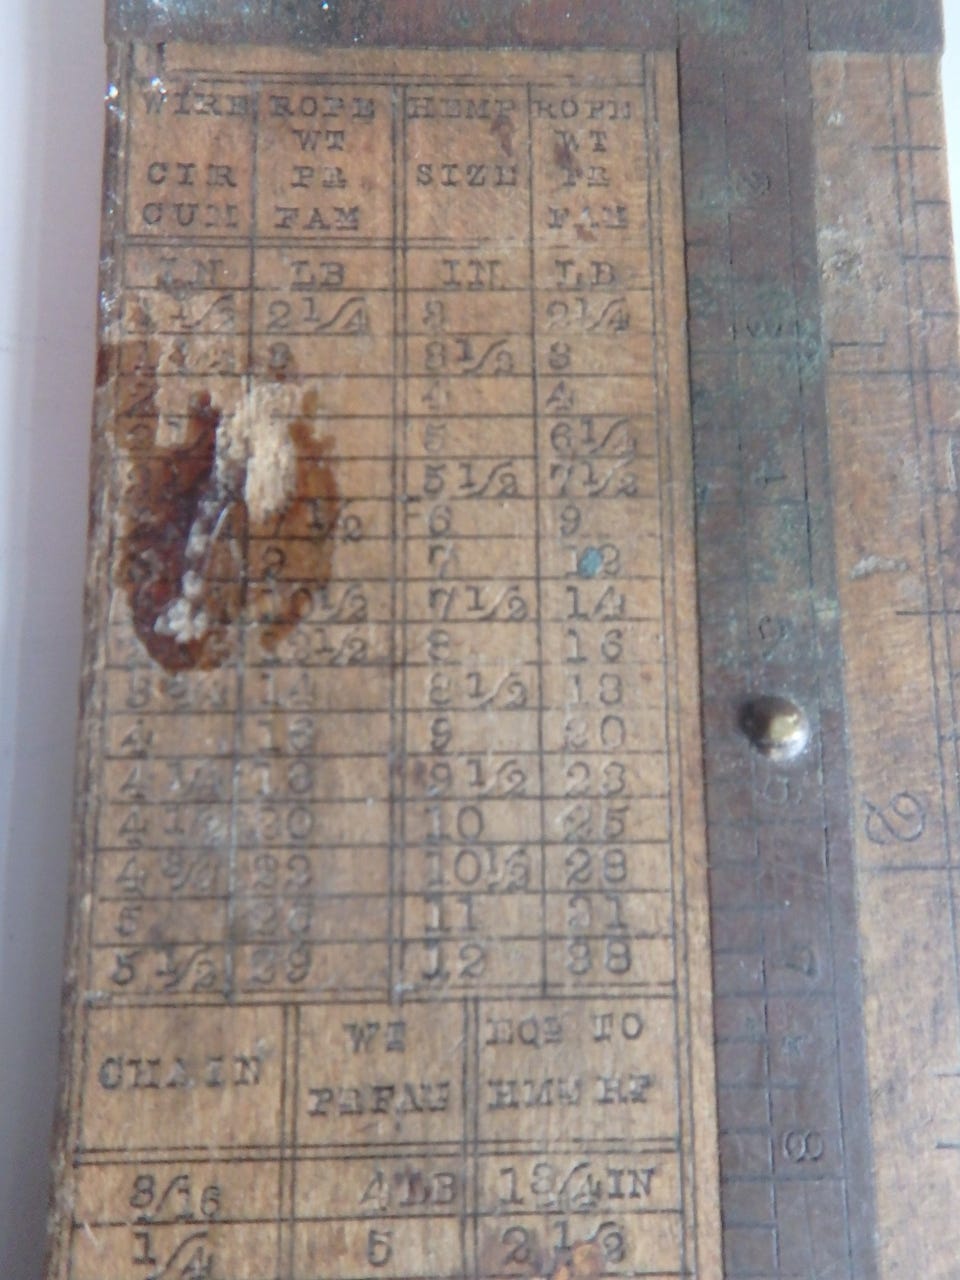 WIRE ROPE HEMP ROPE
WT WT
CIR PR SIZE PR
CUM FAM FAM
IN LB IN LB
2 1/4 3 2 1/4
3 3 1/2 3
2 4 4
5 6 1/4
5 1/2 7 1/2
7 1/2 6 9
9 7 12
10 1/2 7 1/2 14
12 1/2 8 16
14 8 1/2 18
4 16 9 20
4 18 9 1/2 23
4 1/2 20 10 25
4 3/4 23 10 1/2 28
5 26 11 31
5 1/2 29 12 38
CHAIN WT EQL TO
PR FAM HMP RP
3/16 4 LB 1 3/4 IN
1/4 5 2 1/2
5
6
7
8